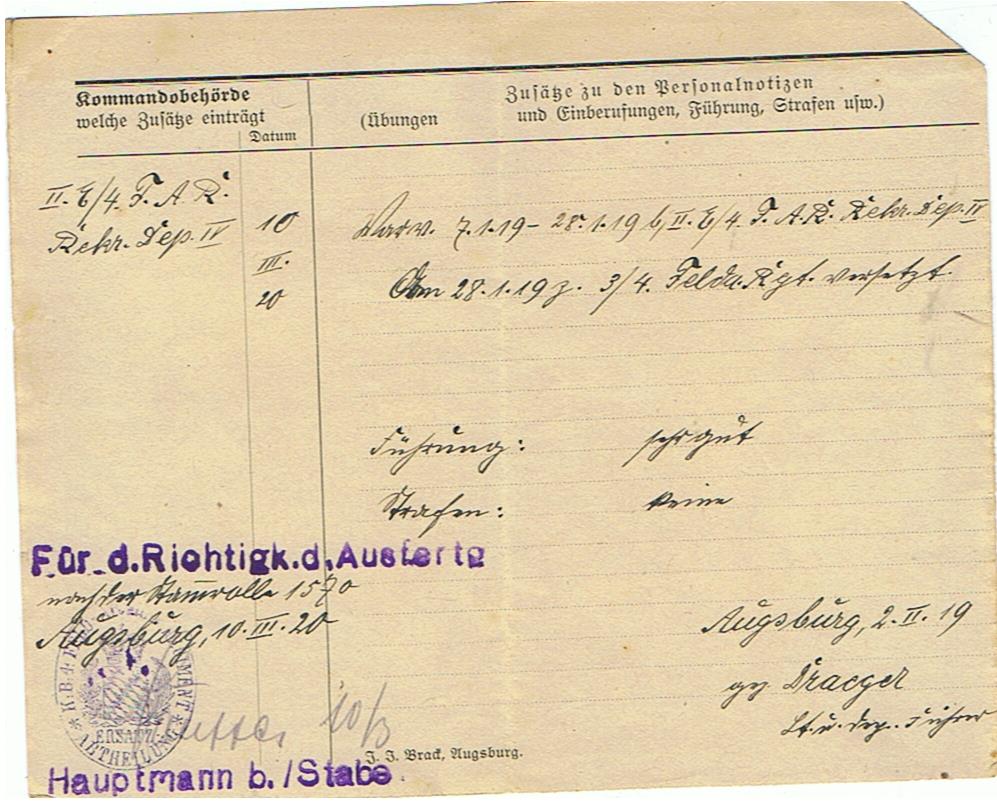 Kommandobehörde
welche Zusätze einträgt
Datum
Zusätze zu den Personalnotizen
(Übungen und Einberufungen, Führung, Strafen usw.)
II. E/4. F. A. R.
Rekr. Dep. IV
10
III.
20
War v. 7.1.19 – 28.1.19 b. II. E/4 F. A. R. Rekr. Dep. IV
Am 28.1.19 z. 3/4. Felda. Rgt. versetzt.
Führung: sehr gut
Strafen: keine
Für d. Richtigk. d. Ausfertg
nach der Stammrolle 1570
Augsburg, 10. III. 20
Augsburg, 2. II. 19
gez Draeger
Lt. u. Dep. Führer
K.B. 4.
ERSATZ
ABTHEILUNG
10/3
J. J. Brack, Augsburg.
Hauptmann b./Stabe